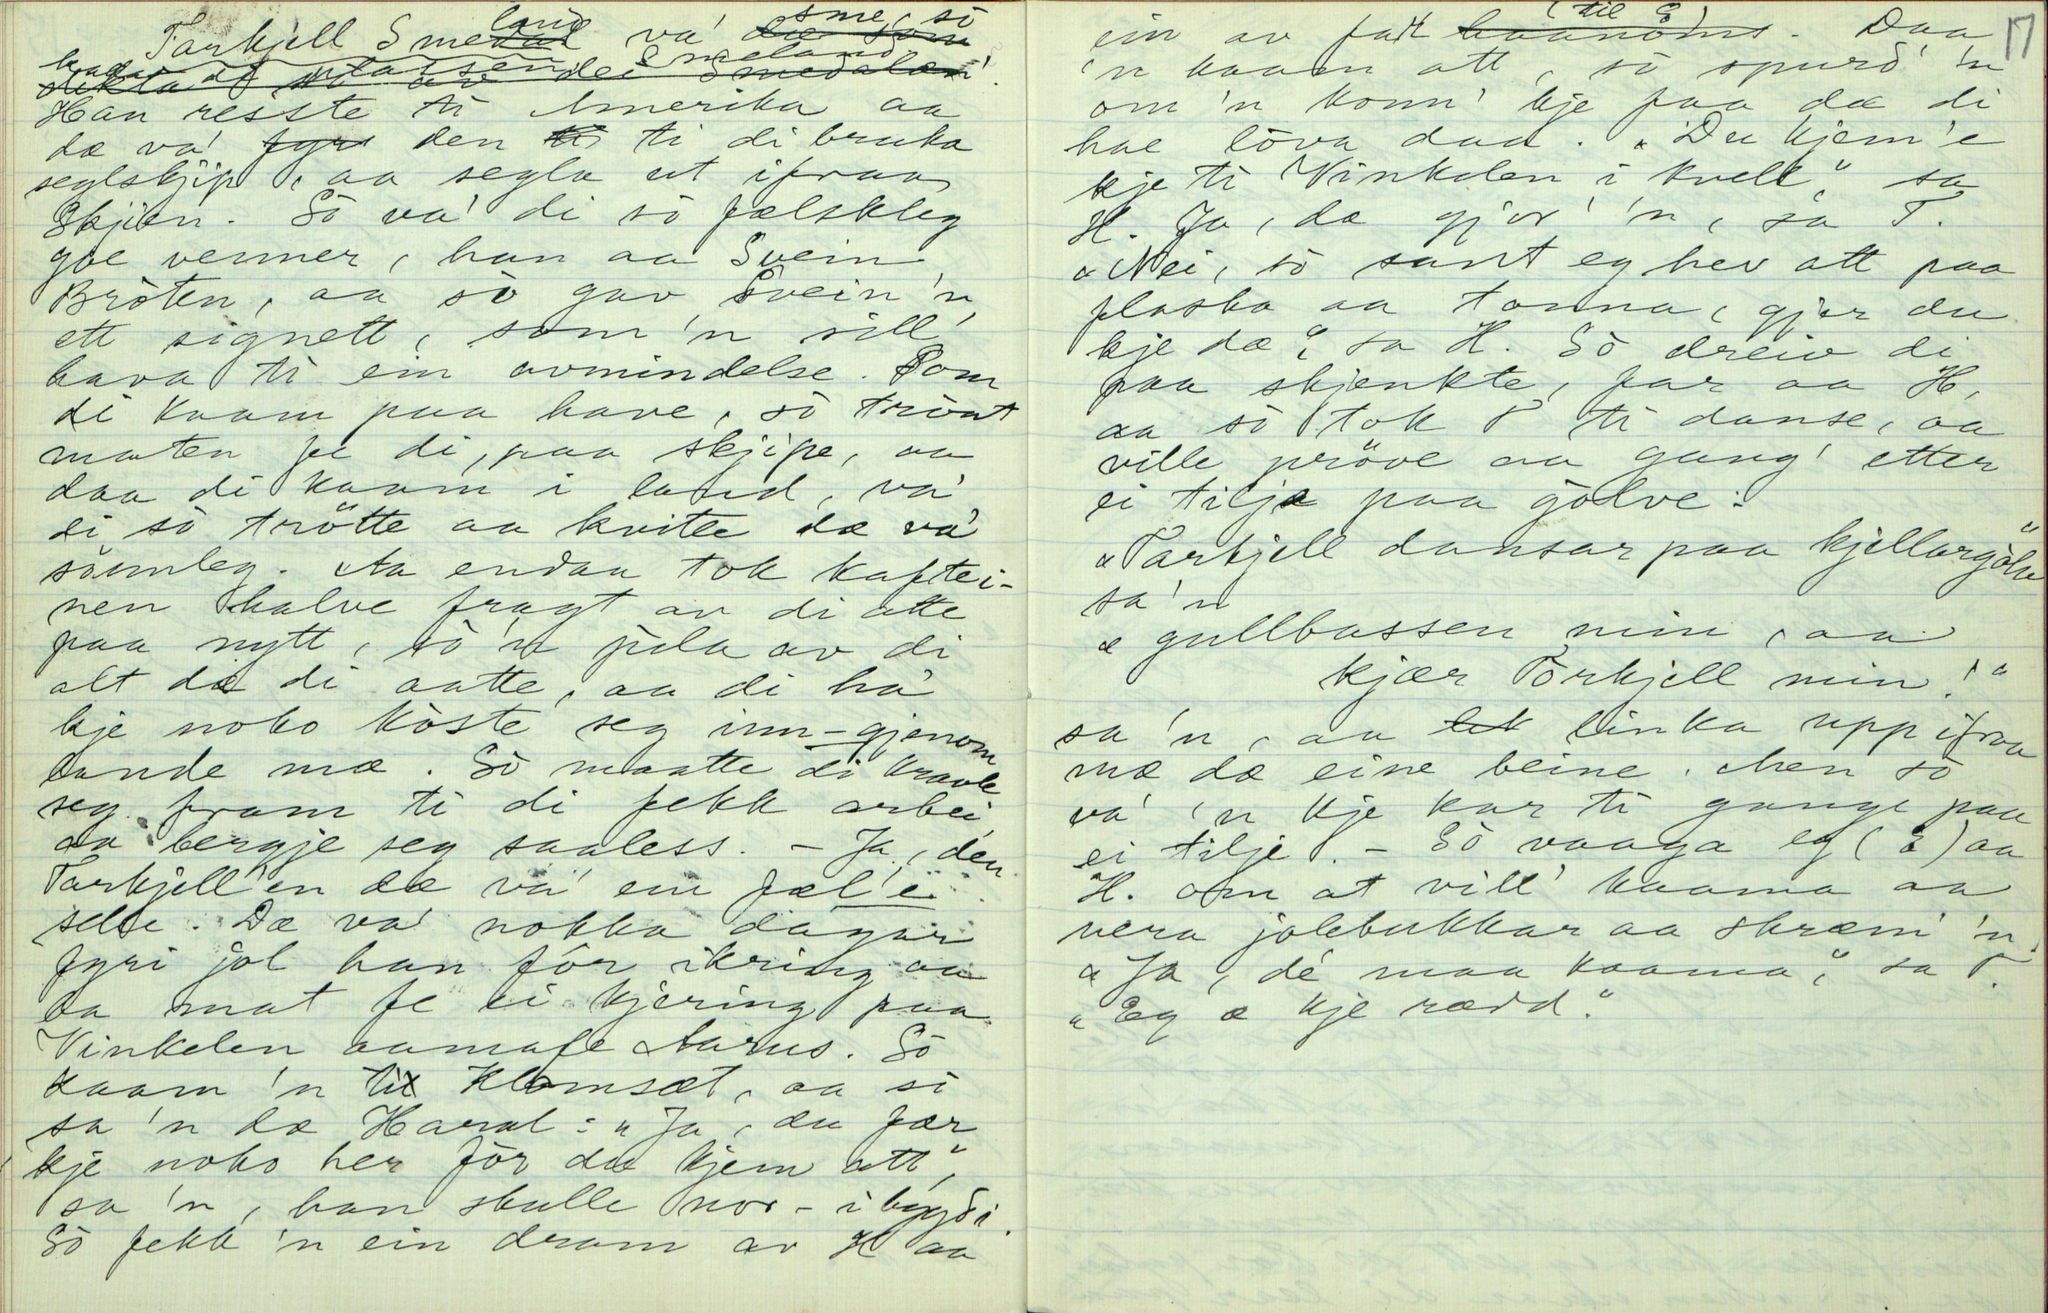 Tarkjell Smeland va' sme, so
Han reisste ti Amerika aa
dæ va' fyrr den ti di bruka
seglskjip, aa segla ut ifraa
Skjien. So va' di so fælskleg
goe venner, han aa Svein
Bròten, aa so gav Svein 'n
ett signett, som 'n vill'
hava ti ein avmindelse. Som
di kaam paa have, so tròut
maten fe di, paa skjipe, aa
daa di kaam i land, va'
di so tròtte aa kvitee dæ va'
sòmleg. Aa endaa tok kaftei-
nen halve fragt av di atte
paa nytt, so 'n pela av di
alt dæ di aatte, aa di ha'
kje noko kòste seg inn-gjenom
lande mæ. So maatte di kravle
seg fram ti di fekk arbei
aa bergje seg saaless. - Ja, den
Tarkjell'en dæ va' ein fæl'e
selle. Dæ va' nokka dagar
fyri jol han fòr ikring aa
ba mat fe ei kjering paa
Vinkelen aamafe Aarus. So
kaam 'n til Klomsæt, aa so
sa 'n dæ Haral: "Ja, du fær
kje noko her fòr du kjem att",
sa 'n, han skulle nor-i bygdi.
So fekk 'n ein dram av H aa
17
ein av far til Ò. Daa
'n kaam att, so spurd' 'n
om 'n konn' kje faa dæ di
hae lòva daa. "Du kjem'e
kje ti Vinkelen i kvell", sa
H. Ja, dæ gjer' 'n, sa T.
"Nei, so sant eg hev att paa
flaska aa tonna, gjer du
kje dæ", sa H. So dreiv di
paa skjenkte, far aa H,
aa so tok T ti danse, aa
ville pròve aa gang' etter
ei tilje paa gòlve:
"Tarkjell dansar paa kjellargòlv"
sa 'n
"gullbassen min, aa
kjær Torkjell min!"
sa 'n, aa linka upp ifraa
mæ dæ eine beine. Men so
va' 'n kje kar ti gange paa
ei tilje. - So vaaga eg (Ò) aa
H. om at vill' kaama aa
vera jolebukkar aa skræm' 'n.
"Ja, dé maa kaama", sa T.
"Eg æ kje rædd."